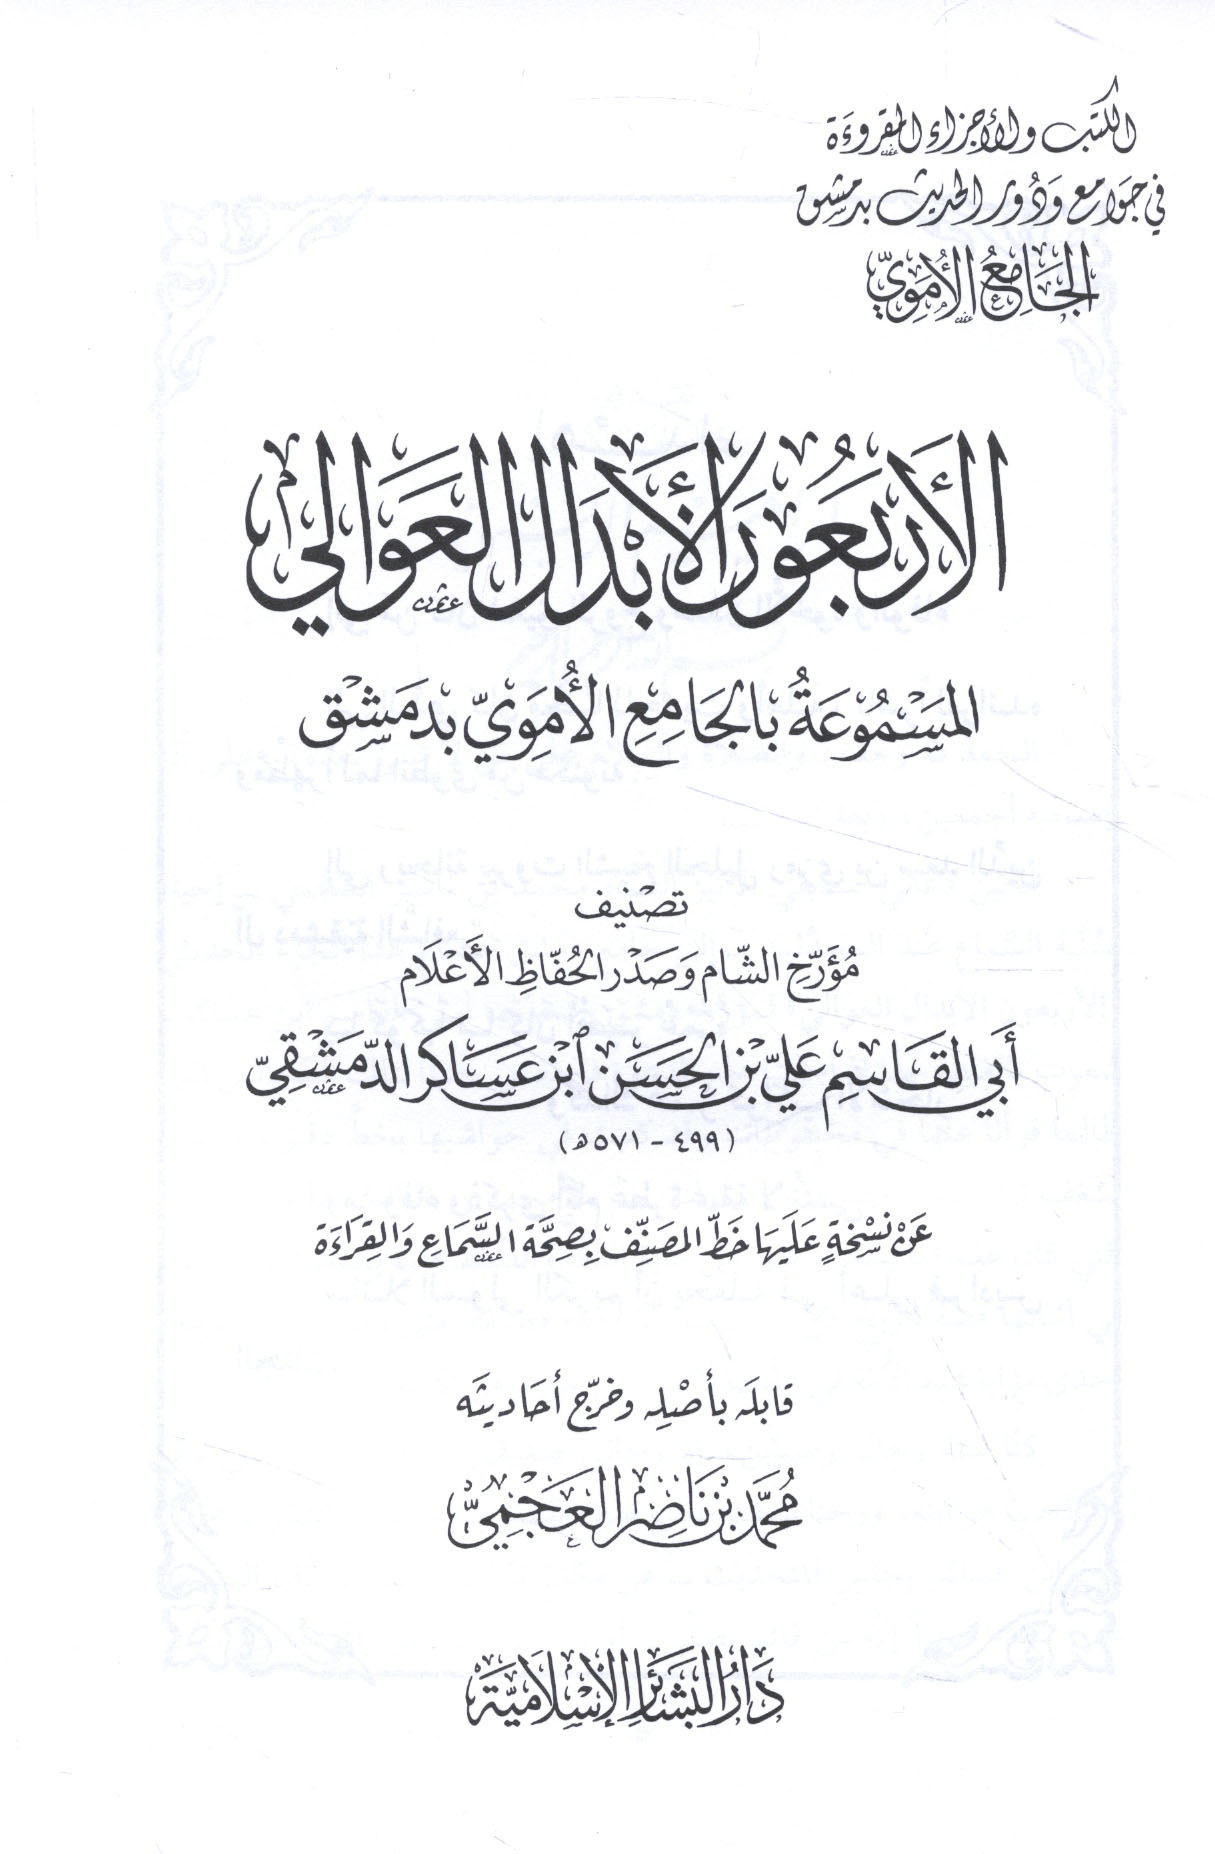 الكتب والأجزاء المقروءة
في جوامع ودور الحديث بدمشق
الجامع الأموي
الأربعون الأبدال العوالي
المسموعة بالجامع الأموي بدمشق
تصنيف
مؤرخ الشام وصدر الحفاظ الأعلام
أبي القاسم علي بن الحسن ابن عساكر الدمشقي
(٤٩٩ - ٥٧١ه)
عن نسخة عليها خط المصنف بصحة السماع والقراءة
قابله بأصله وخرج أحاديثه
محمد بن ناصر العجمي
دار البشائر الإسلامية